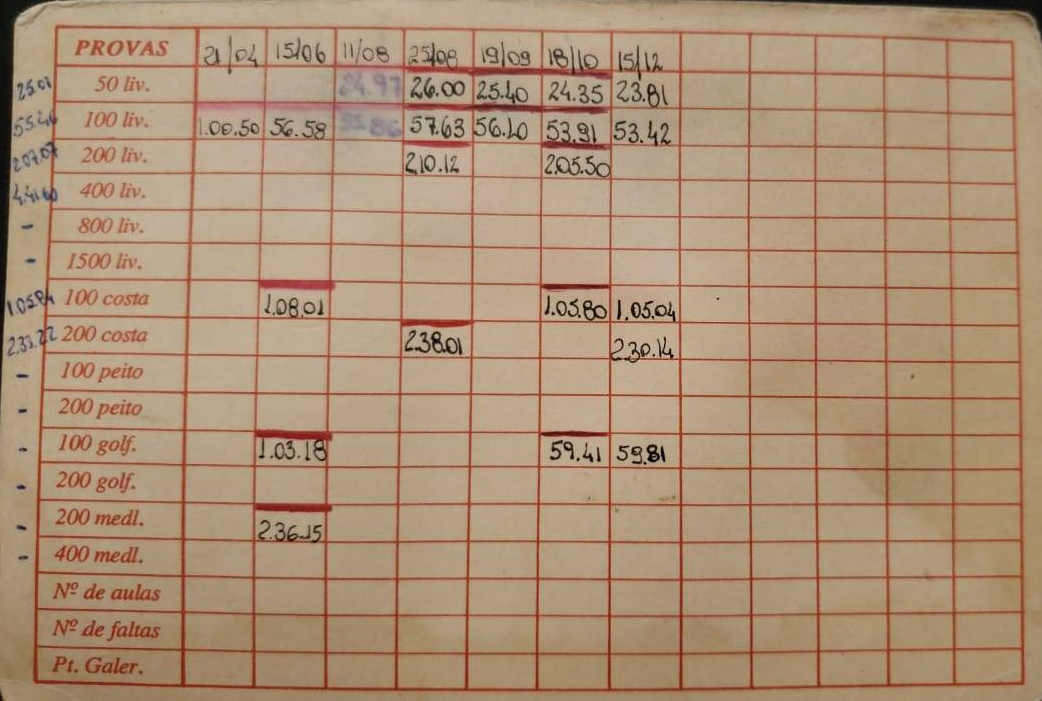 PROVAS 21/04 15/06 11/08 25/08 19/09 18/10 15/12
50 liv. 24.97 26.00 25.40 24.35 23.81
55.46 100 liv. 1.00.50 56.58 55.86 57.63 56.40 53.91 53.42
2.07.07 200 liv. 2.10.12 2.05.50
4.41.60 400 liv.
- 800 liv.
- 1500 liv.
1.05.84 100 costa 1.08.01 1.05.80 1.05.04
2.33.22 200 costa 2.38.01 2.30.14
- 100 peito
- 200 peito
- 100 golf. 1.03.18 59.41 59.81
- 200 golf.
- 200 medl. 2.36.15
- 400 medl.
Nº de aulas
Nº de faltas
Pt. Galer.